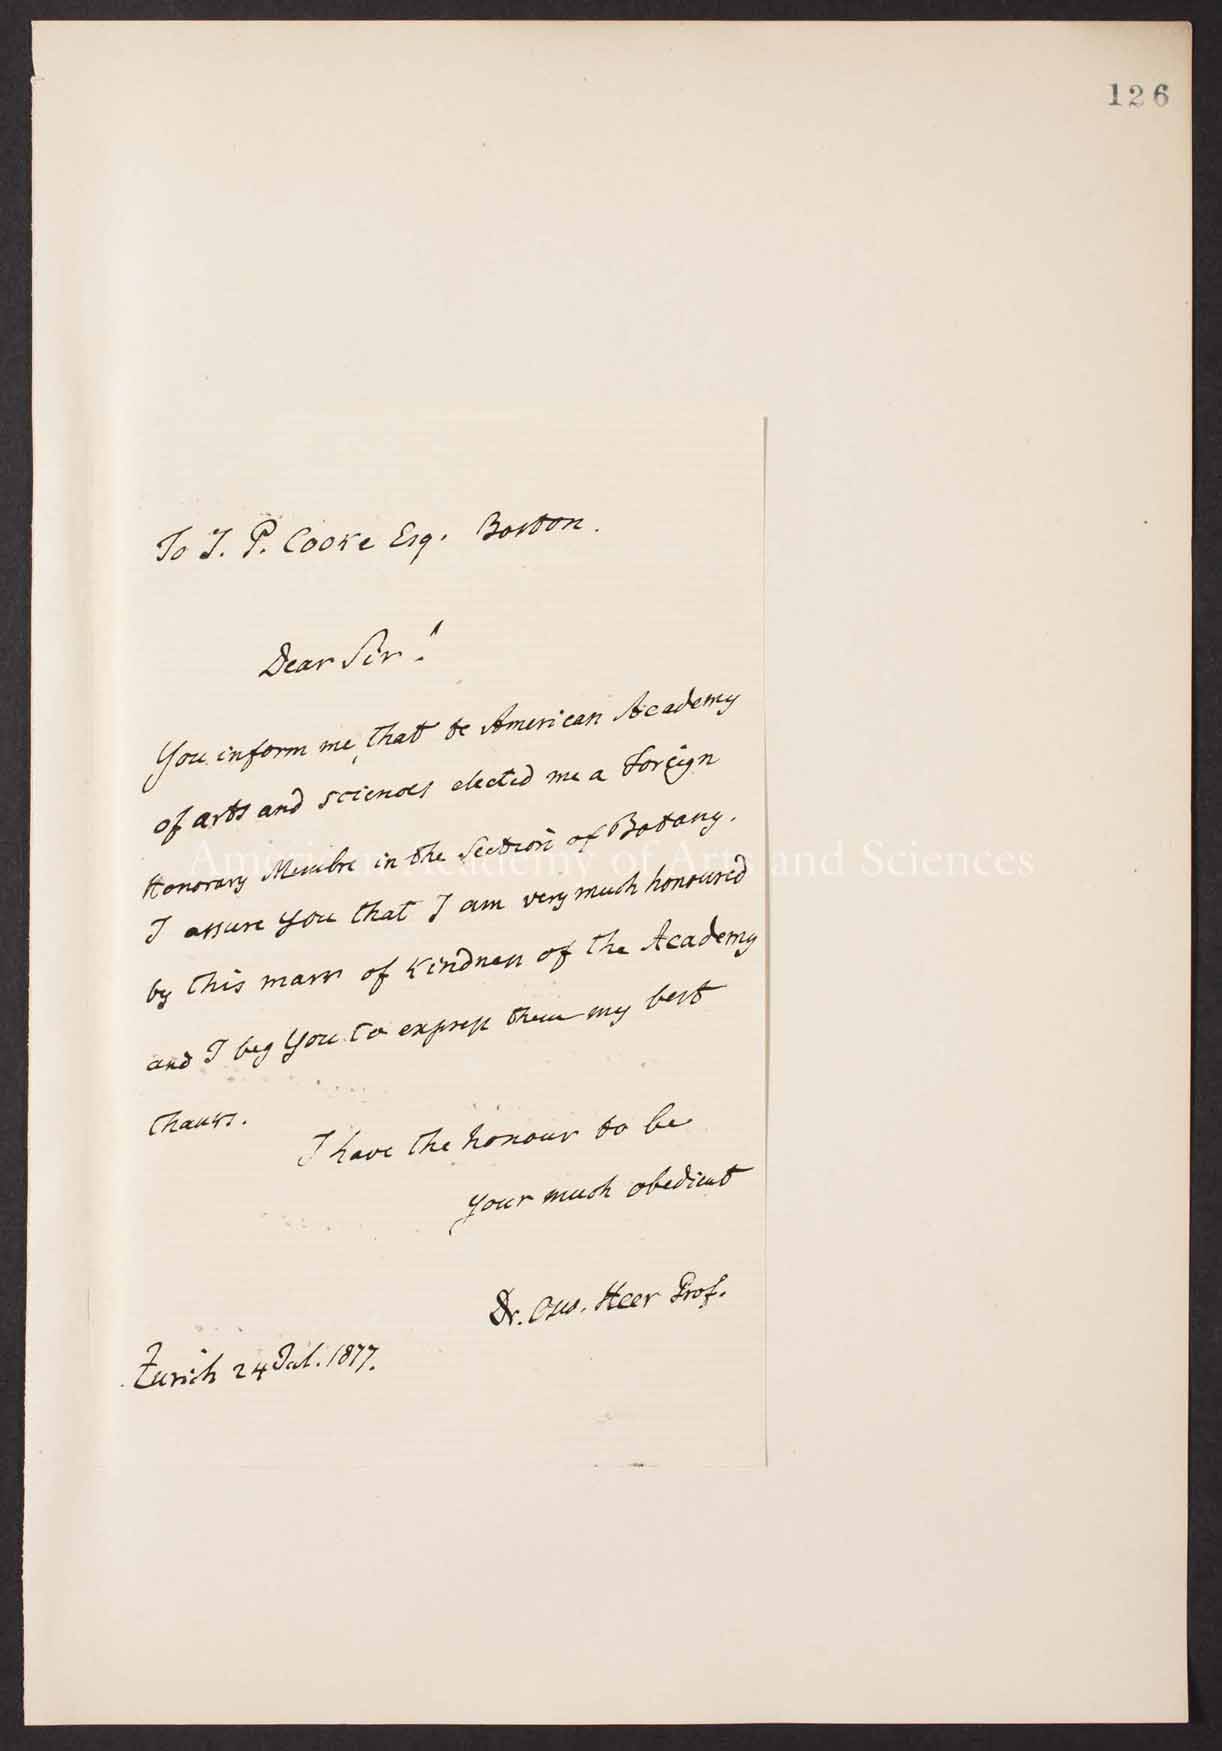 126
To J. P. Cooke Esq. Boston.
Dear Sir!
You inform me, that te American Academy
of arts and sciences elected me a Foreign
Honorary Membre in the Section of Botany.
American Academy of Arts and Sciences
I assure you that I am very much honoured
by this mark of kindness of the Academy
and I beg You to express them my best
thanks.
I have the honour to be
your much obedient
Dr. Osw. Heer Prof.
Zurich 24 Jul. 1877.